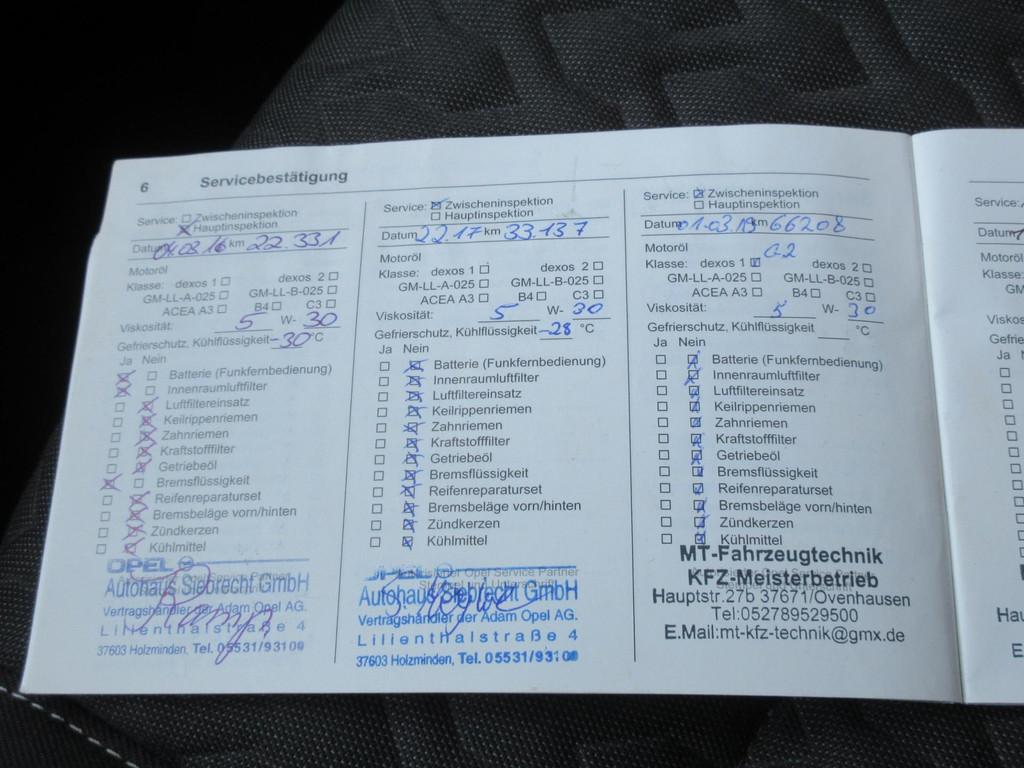 6 Servicebestätigung
Service: Zwischeninspektion
Hauptinspektion
Datum 04.03.16 km 22.331
Motoröl
Klasse: dexos 1 dexos 2
GM-LL-A-025 GM-LL-B-025
ACEA A3 B4 C3
Viskosität: 5 W- 30
Gefrierschutz, Kühlflüssigkeit -30 °C
Ja Nein
Batterie (Funkfernbedienung)
Innenraumluftfilter
Luftfiltereinsatz
Keilrippenriemen
Zahnriemen
Kraftstofffilter
Getriebeöl
Bremsflüssigkeit
Reifenreparaturset
Bremsbeläge vorn/hinten
Zündkerzen
Kühlmittel
OPEL
Autohaus Siebrecht GmbH
Vertragshändler der Adam Opel AG.
Lilienthalstraße 4
37603 Holzminden, Tel. 05531/93100
Service: Zwischeninspektion
Hauptinspektion
Datum 22.17 km 33.137
Motoröl
Klasse: dexos 1 dexos 2
GM-LL-A-025 GM-LL-B-025
ACEA A3 B4 C3
Viskosität: 5 W- 30
Gefrierschutz, Kühlflüssigkeit -28 °C
Ja Nein
Batterie (Funkfernbedienung)
Innenraumluftfilter
Luftfiltereinsatz
Keilrippenriemen
Zahnriemen
Kraftstofffilter
Getriebeöl
Bremsflüssigkeit
Reifenreparaturset
Bremsbeläge vorn/hinten
Zündkerzen
Kühlmittel
OPEL Opel Service Partner
Stempel und Unterschrift
Autohaus Siebrecht GmbH
Vertragshändler der Adam Opel AG.
Lilienthalstraße 4
37603 Holzminden, Tel. 05531/93100
Service: Zwischeninspektion
Hauptinspektion
Datum 01.03.19 km 66208
Motoröl G2
Klasse: dexos 1 dexos 2
GM-LL-A-025 GM-LL-B-025
ACEA A3 B4 C3
Viskosität: 5 W- 30
Gefrierschutz, Kühlflüssigkeit °C
Ja Nein
Batterie (Funkfernbedienung)
Innenraumluftfilter
Luftfiltereinsatz
Keilrippenriemen
Zahnriemen
Kraftstofffilter
Getriebeöl
Bremsflüssigkeit
Reifenreparaturset
Bremsbeläge vorn/hinten
Zündkerzen
Kühlmittel
MT-Fahrzeugtechnik
KFZ-Meisterbetrieb
Hauptstr.27b 37671/Ovenhausen
Tel:052789529500
E.Mail:mt-kfz-technik@gmx.de
Service:
Datum
Motoröl
Klasse:
GM
Ja